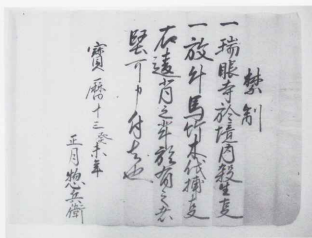 禁制
一瑞賬寺於境内殺生夏
一放外馬竹木伐捕夏
右違背之輩於有之者
堅可申付者也
寶暦十三癸未年
正月惣兵衛